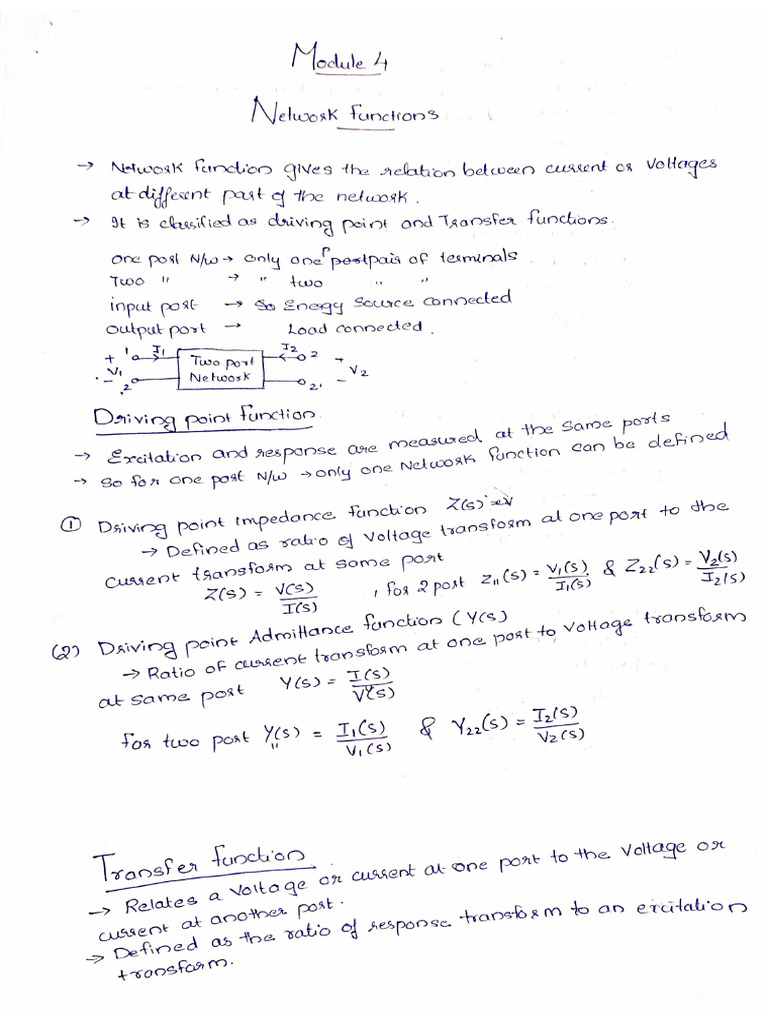 Module 4
Network functions
→ Network function gives the relation between current or voltages
at different part of the network.
→ It is classified as driving point and Transfer functions.
one port N/w → only one port pair of terminals
Two " → " two " "
input port → So Energy Source connected
output port → Load connected.
+ 1 I1 Two port Network I2 2 +
V1 V2
- 2 2' -
Driving point function
→ Excitation and response are measured at the same ports
→ So for one port N/w → only one Network function can be defined
① Driving point Impedance function Z(s)
→ Defined as ratio of voltage transform at one port to the
current transform at some port
Z(s) = V(s)/I(s) , for 2 port Z11(s) = V1(s)/I1(s) & Z22(s) = V2(s)/I2(s)
(2) Driving point Admittance function (Y(s)
→ Ratio of current transform at one port to voltage transform
at same port Y(s) = I(s)/V(s)
for two port Y11(s) = I1(s)/V1(s) & Y22(s) = I2(s)/V2(s)
Transfer function
→ Relates a voltage or current at one port to the voltage or
current at another port.
→ Defined as the ratio of response transform to an excitation
transform.